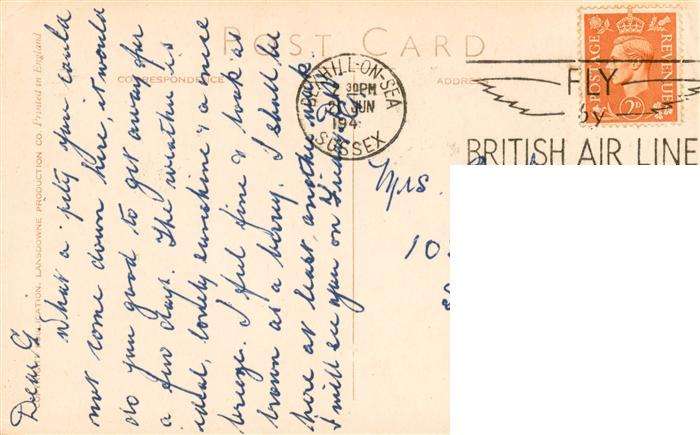 POST CARD
CORRESPONDENCE
ADDRESS
LANSDOWNE PRODUCTION CO Printed in England
BEXHILL-ON-SEA
30PM
JUN
194
SUSSEX
POSTAGE
REVENUE
2D
FLY
By
BRITISH AIR LINE
Dear G
What a pity you coula
not come down here, it would
do you good to get away for
a few days. The weather is
ideal, lovely sunshine & a nice
breeze. I feel fine & look as
brown as a berry. I shall be
here at least another week.
I will see you on Friday
Mrs.
10